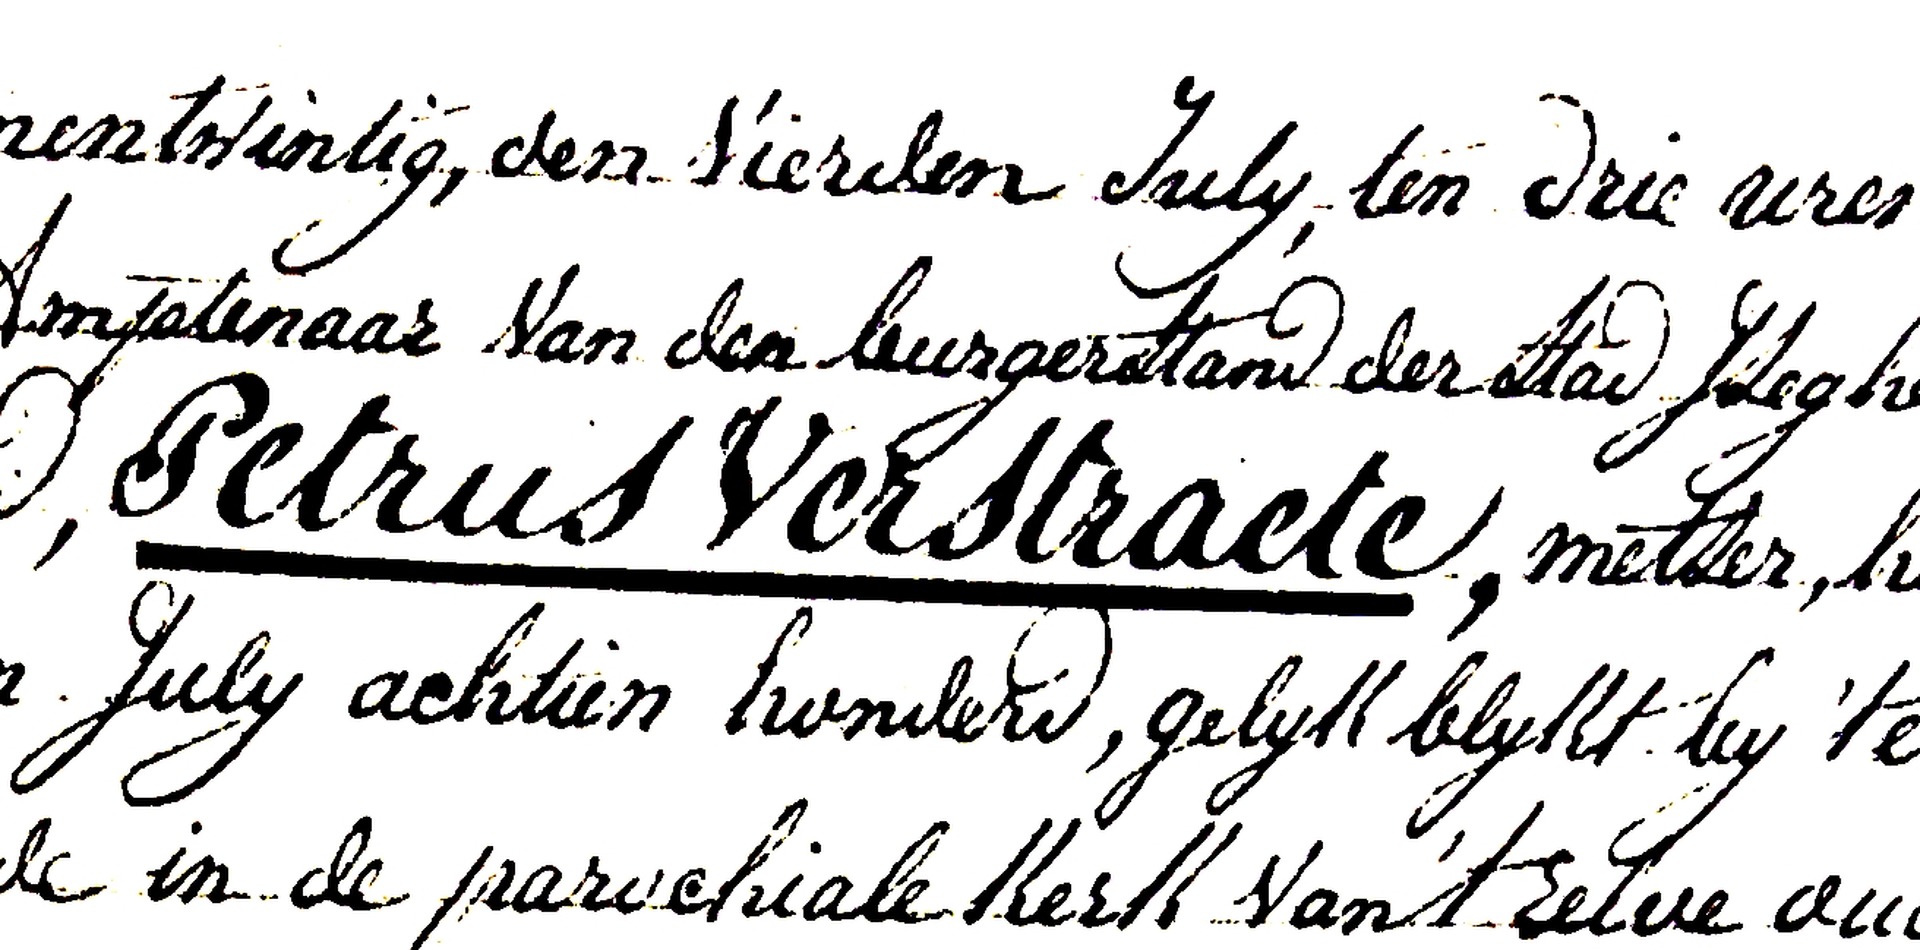 nentwintig, den Vierden July, ten Drie uren
Amptenaar Van den burgerstand der stad Iseghe
, Petrus Verstraete, metser,
n July achtien honderd, gelyk blykt by 't
de in de parochiale Kerk Van 't zelve